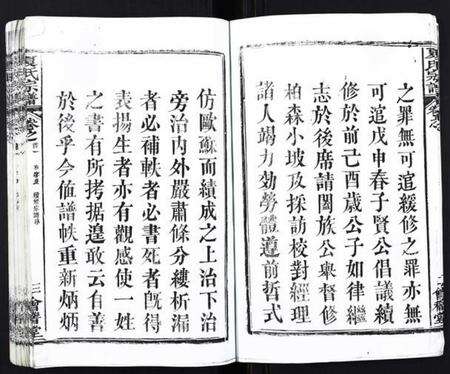 之罪無可逭緩修之罪亦無
可逭戊申春子賢公倡議續
修於前己酉歲公子如律繼
志於後席請闔族公舉督修
柏森小坡及採訪校對經理
諸人竭力効勞體遵前哲式
仿歐蘇而績成之上治下治
旁治內外嚴肅條分縷析漏
者必補軼者必書死者旣得
表揚生者亦有觀感使一姓
之書有所考据遑敢云有善
於後乎今値譜帙重新炳炳